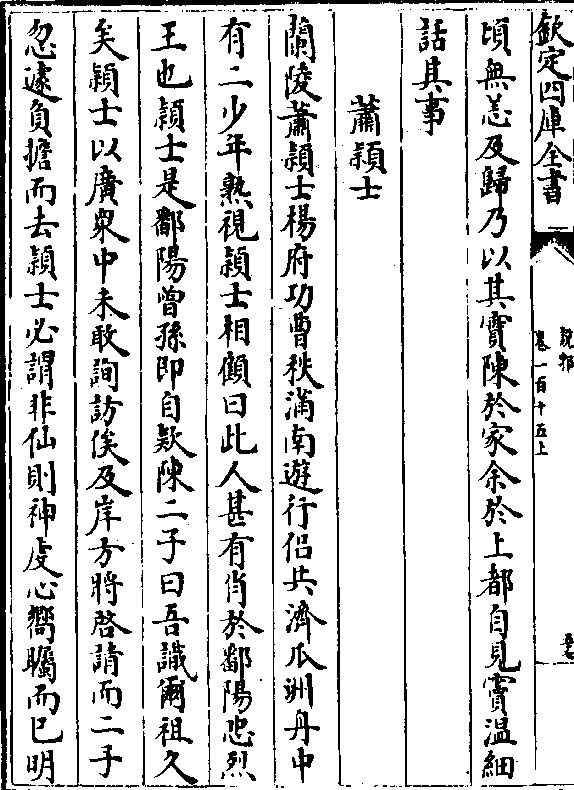 欽定四庫全書
說郛
卷一百十五上
頃無恙及歸乃以其寶陳於家余於上都自見賓溫細
話其事
蕭穎士
蘭陵蕭穎士楊府功曹秩滿南遊行侣共濟瓜洲舟中
有二少年熟視穎士相顧曰此人甚有肖於鄱陽忠烈
王也穎士是鄱陽曾孫即自欵陳二子曰吾識爾祖久
矣穎士以廣衆中未敢詢訪俟及岸方將啓請而二子
忽遽負擔而去穎士必謂非仙則神虔心嚮矚而已明